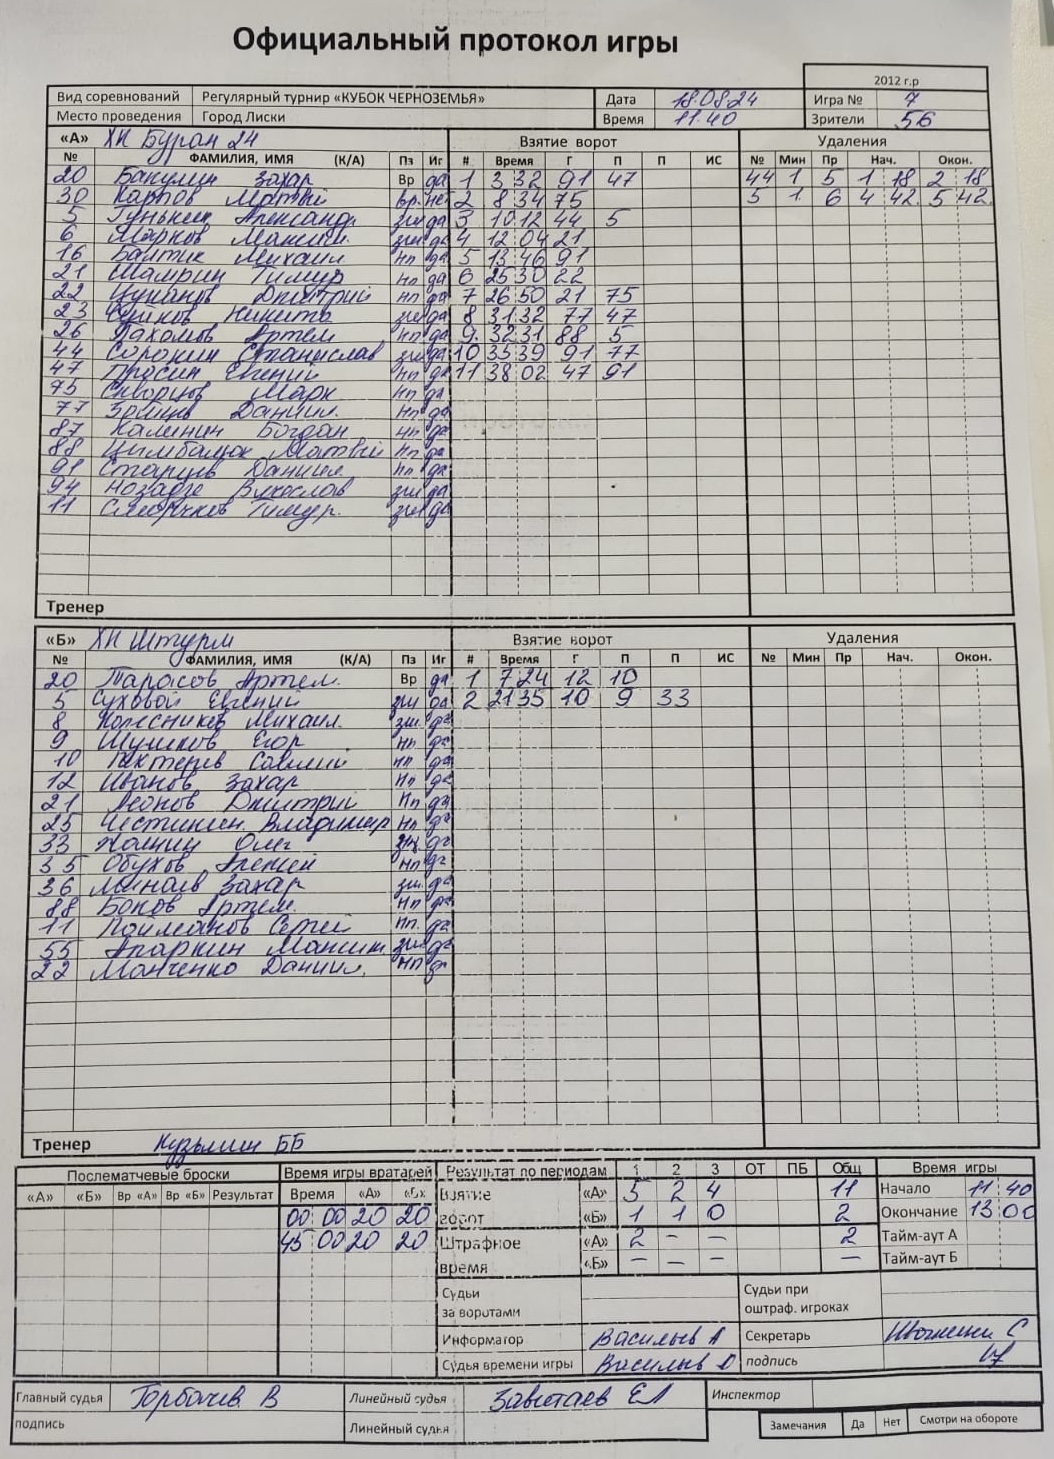 Официальный протокол игры
2012 г.р
Вид соревнований Регулярный турнир «КУБОК ЧЕРНОЗЕМЬЯ» Дата 18.08.24 Игра № 7
Место проведения Город Лиски Время 11.40 Зрители 56
«А» ХК Буран 24 Взятие ворот Удаления
№ ФАМИЛИЯ, ИМЯ (К/А) Пз Иг # Время Г П П ИС № Мин Пр Нач. Окон.
20 Бакулин Захар Вр да 1 3 32 91 47 44 1 5 1 18 2 18
30 Карпов Матвей вр. не 2 8 34 75 5 1 6 4 42 5 42
5 Александр зщ да 3 10 12 44 5
6 Марков Максим зщ да 4 12 04 21
16 Михаил нп да 5 13 46 91
21 Шамрин Тимур нп да 6 25 30 22
22 Цуканов Дмитрий нп да 7 26 50 21 75
23 Никита зщ да 8 31 32 77 47
26 Пахомов Артем нп да 9 32 31 88 5
44 Сорокин Станислав зщ да 10 35 39 91 77
47 Просин Евгений нп да 11 38 02 47 91
75 Скворцов Марк нп да
77 Даниил нп да
87 Калинин Богдан нп да
88 Цымбалюк Матвей нп да
91 Старцев Даниил нп да
94 Нозадзе Вячеслав зщ да
11 Тимур. зщ да
Тренер
«Б» ХК Штурм Взятие ворот Удаления
№ ФАМИЛИЯ, ИМЯ (К/А) Пз Иг # Время Г П П ИС № Мин Пр Нач. Окон.
20 Тарасов Артем. Вр да 1 7 24 12 10
5 Суховой Евгений зщ да 2 21 35 10 9 33
8 Колесников Михаил. зщ. да
9 Шушков Егор нп да
10 нп да
12 Иванов Захар нп да
21 Леонов Дмитрий нп да
25 Владимир нп да
33 Олег зщ. да
35 Обухов Алексей нп да
36 Минаев Захар зщ. да
88 Боков Артем. нп да
11 Пойманов Сергей нп. да
55 Апаркин Максим зщ да
22 Манченко Данил. нп да
Тренер Кузьмин ББ
Послематчевые броски Время игры вратарей Результат по периодам 1 2 3 ОТ ПБ Общ Время игры
«А» «Б» Вр «А» Вр «Б» Результат Время «А» «Б» Взятие ворот «А» 5 2 4 11 Начало 11 40
00 00 20 20 «Б» 1 1 0 2 Окончание 13 00
45 00 20 20 Штрафное время «А» 2 - - 2 Тайм-аут А
«Б» - - - - Тайм-аут Б
Судьи за воротами Судьи при оштраф. игроках
Информатор Васильев А Секретарь
Судья времени игры Васильев О подпись
Главный судья Горбачев В Линейный судья Завитаев ЕА Инспектор
подпись Линейный судья Замечания Да Нет Смотри на обороте